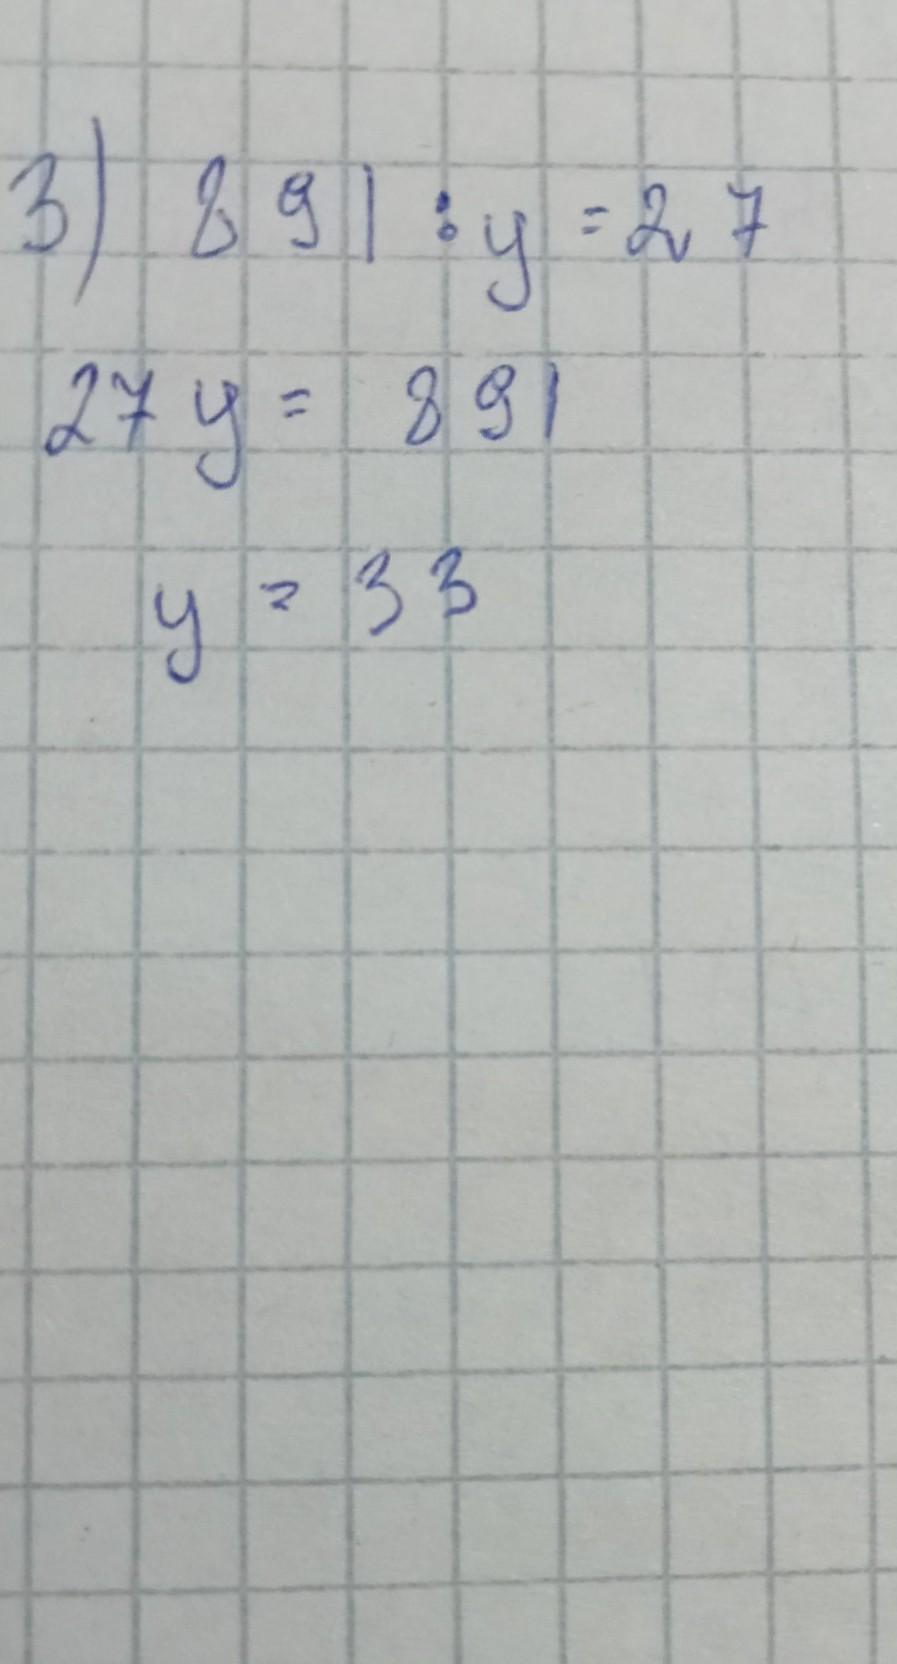 3) 891 : y = 27
27y = 891
y = 33